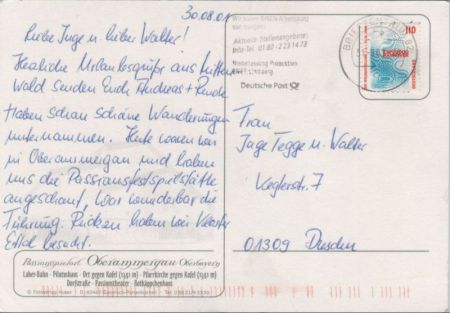 30.08.01
Liebe Inge u. lieber Walter!
Herzliche Urlaubsgrüße aus
wald senden Euch Andreas +
Haben schon schöne Wanderungen
unternommen. Heute waren wir
in Oberammergau und haben
uns die Passionsfestspielstätte
angeschaut, war wunderbar die
Führung. Rückzu haben wir Kloster
Ettal besucht.
Passionsspieldorf Oberammergau Oberbayern
Laber-Bahn · Pilatushaus · Ort gegen Kofel (1341 m) · Pfarrkirche gegen Kofel (1341 m)
Dorfstraße · Passionstheater · Rotkäppchenhaus
Aktuelle Stellenangebote:
Info-Tel. 01 80 - 2 23 14 73
Niederlassung Produktion
Deutsche Post
110
Frau
Inge Tegge u. Walter
Keglerstr. 7
01309 Dresden